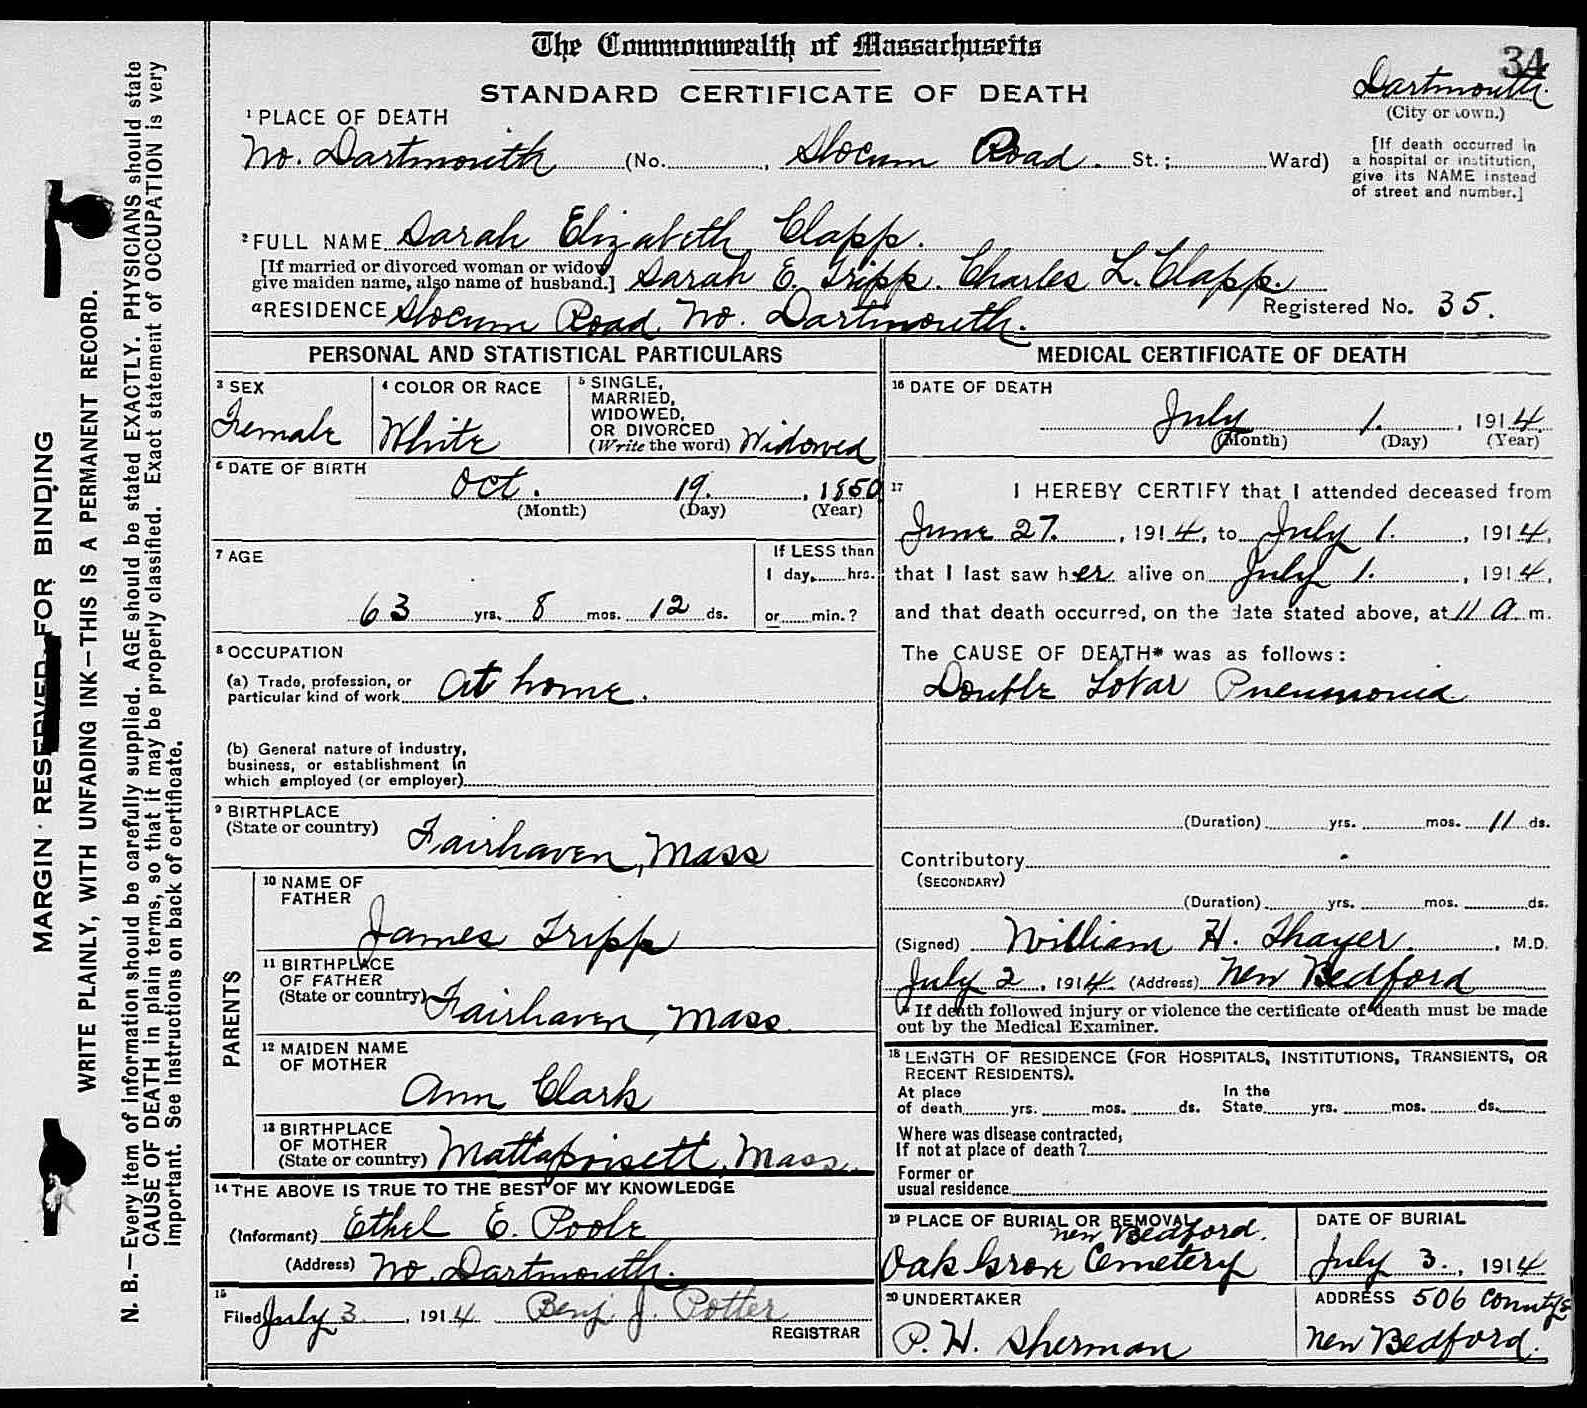 The Commonwealth of Massachusetts
34
STANDARD CERTIFICATE OF DEATH
Dartmouth.
(City or town.)
1 PLACE OF DEATH
No. Dartmouth (No. , Slocum Road. St.; Ward)
[If death occurred in
a hospital or institution,
give its NAME instead
of street and number.]
2 FULL NAME Sarah Elizabeth Clapp.
[If married or divorced woman or widow
give maiden name, also name of husband.] Sarah E. Tripp. Charles L. Clapp.
a RESIDENCE Slocum Road. No. Dartmouth.
Registered No. 35.
PERSONAL AND STATISTICAL PARTICULARS
3 SEX
Female
4 COLOR OR RACE
White
5 SINGLE,
MARRIED,
WIDOWED,
OR DIVORCED
(Write the word) Widowed
6 DATE OF BIRTH
Oct. 19. , 1850
(Month) (Day) (Year)
7 AGE
63 yrs. 8 mos. 12 ds.
If LESS than
1 day, hrs.
or min.?
8 OCCUPATION
(a) Trade, profession, or
particular kind of work At home.
(b) General nature of industry,
business, or establishment in
which employed (or employer)
9 BIRTHPLACE
(State or country)
Fairhaven, Mass
PARENTS
10 NAME OF
FATHER
James Tripp
11 BIRTHPLACE
OF FATHER
(State or country) Fairhaven, Mass.
12 MAIDEN NAME
OF MOTHER
Ann Clark
13 BIRTHPLACE
OF MOTHER
(State or country) Mattapoisett, Mass.
14 THE ABOVE IS TRUE TO THE BEST OF MY KNOWLEDGE
(Informant) Ethel E. Poole
(Address) No. Dartmouth.
15
Filed July 3. , 1914 Benj. J. Potter
REGISTRAR
MEDICAL CERTIFICATE OF DEATH
16 DATE OF DEATH
July 1. , 1914.
(Month) (Day) (Year)
17 I HEREBY CERTIFY that I attended deceased from
June 27. , 1914, to July 1. , 1914,
that I last saw her alive on July 1. , 1914,
and that death occurred, on the date stated above, at 11 a m.
The CAUSE OF DEATH* was as follows:
Double Lobar Pneumonia
(Duration) yrs. mos. 11 ds.
Contributory
(SECONDARY)
(Duration) yrs. mos. ds.
(Signed) William H. Thayer. , M.D.
July 2 , 1914. (Address) New Bedford
* If death followed injury or violence the certificate of death must be made
out by the Medical Examiner.
18 LENGTH OF RESIDENCE (FOR HOSPITALS, INSTITUTIONS, TRANSIENTS, OR
RECENT RESIDENTS).
At place
of death yrs. mos. ds.
In the
State yrs. mos. ds.
Where was disease contracted,
If not at place of death?
Former or
usual residence
19 PLACE OF BURIAL OR REMOVAL
New Bedford.
Oak Grove Cemetery
DATE OF BURIAL
July 3. , 1914
20 UNDERTAKER
P. H. Sherman
ADDRESS 506 County St
New Bedford.
MARGIN RESERVED FOR BINDING
WRITE PLAINLY, WITH UNFADING INK—THIS IS A PERMANENT RECORD.
N. B.—Every item of information should be carefully supplied. AGE should be stated EXACTLY. PHYSICIANS should state
CAUSE OF DEATH in plain terms, so that it may be properly classified. Exact statement of OCCUPATION is very
important. See instructions on back of certificate.